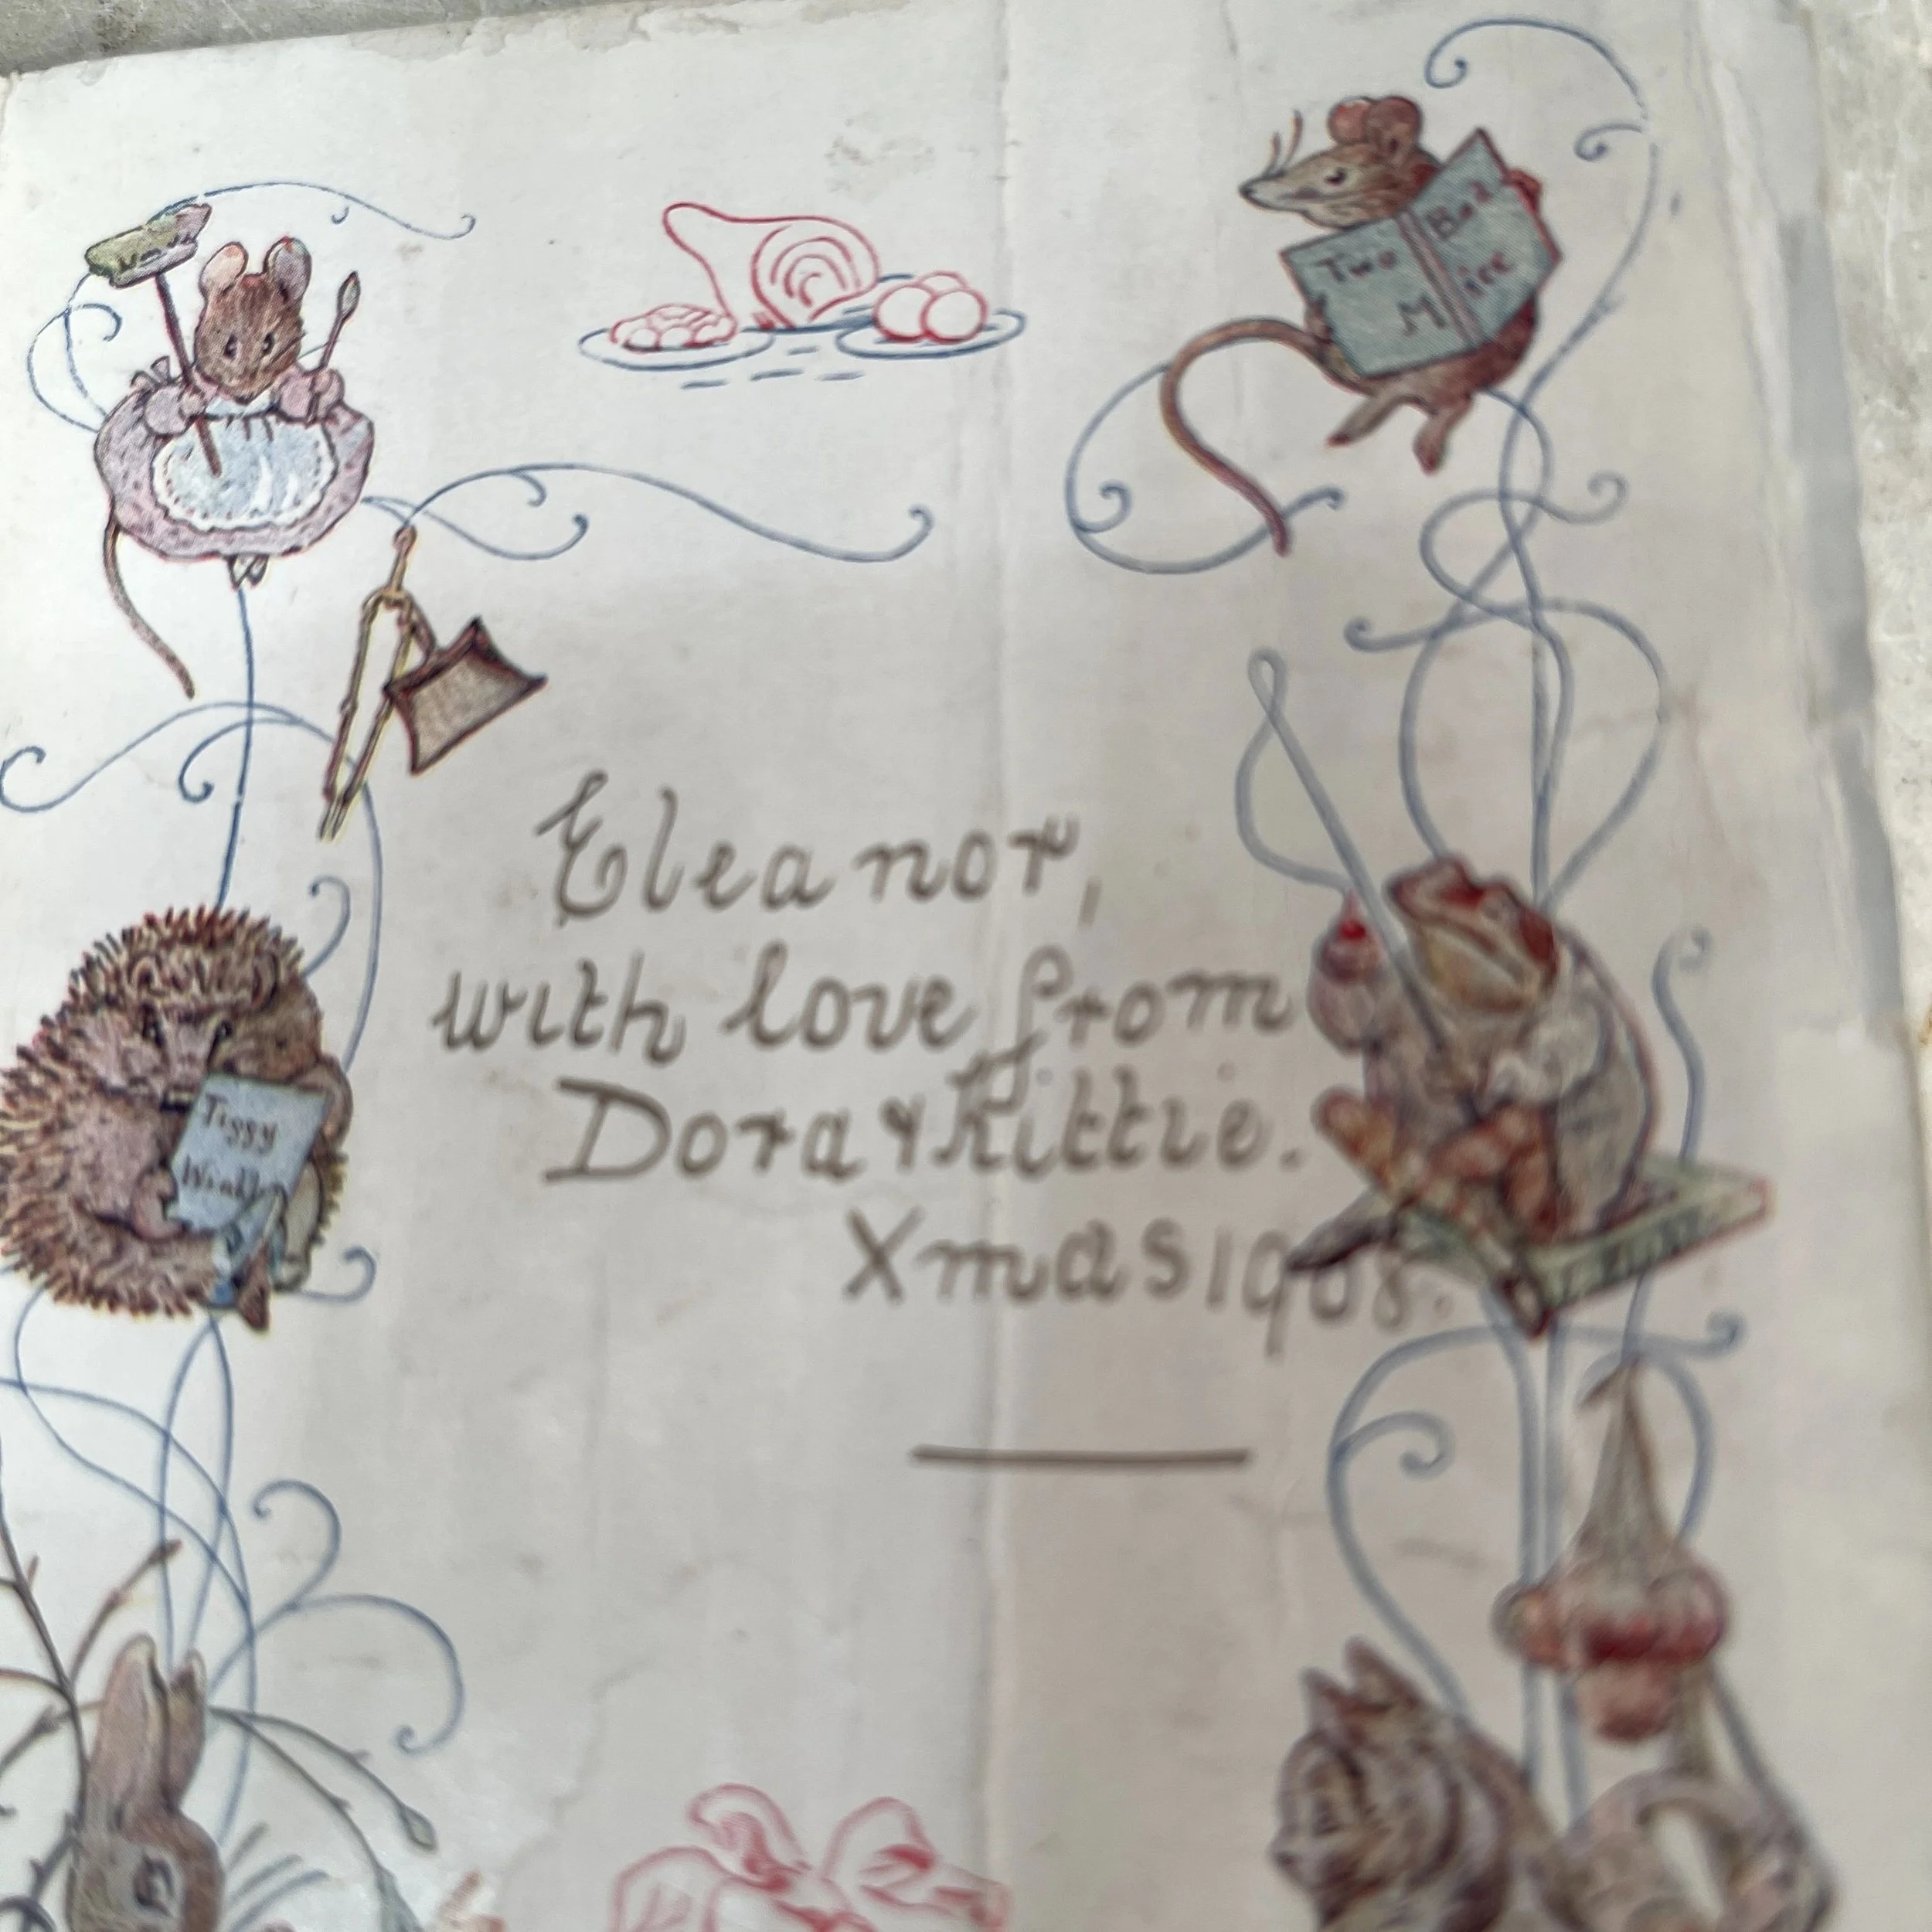 Two Bad
Mice
Eleanor,
with love from
Dora & Kittie.
Tiggy
Xmas 1908.